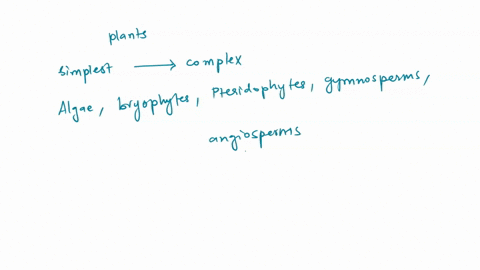 plants
simplest → complex
Algae, bryophytes, Pteridophytes, gymnosperms,
angiosperms